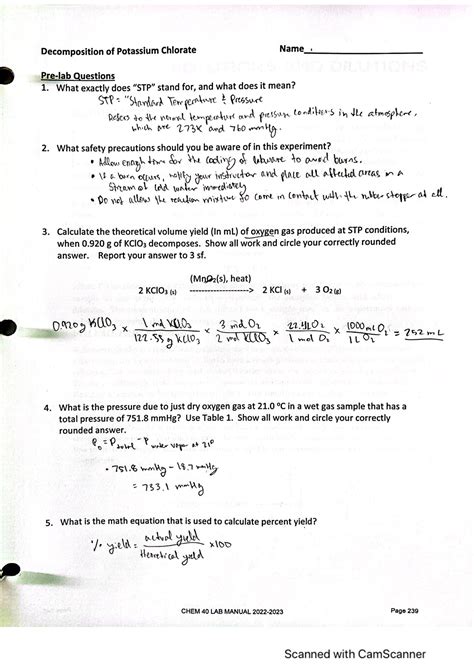 Decomposition of Potassium Chlorate Name
Pre-lab Questions
1. What exactly does "STP" stand for, and what does it mean?
STP = "Standard Temperature & Pressure
Refers to the normal temperature and pressure conditions in the atmosphere,
which are 273K and 760 mmHg.
2. What safety precautions should you be aware of in this experiment?
• Allow enough time for the cooling of labware to avoid burns.
• If a burn occurs, notify your instructor and place all affected areas in a
stream of cold water immediately
• Do not allow the reaction mixture to come in contact with the rubber stopper at all.
3. Calculate the theoretical volume yield (In mL) of oxygen gas produced at STP conditions,
when 0.920 g of KClO₃ decomposes. Show all work and circle your correctly rounded
answer. Report your answer to 3 sf.
(MnO₂(s), heat)
2 KClO₃ (s) --------------------> 2 KCl (s) + 3 O₂ (g)
0.920g KClO₃ x 1 mol KClO₃ / 122.55 g KClO₃ x 3 mol O₂ / 2 mol KClO₃ x 22.4L O₂ / 1 mol O₂ x 1000mL O₂ / 1 L O₂ = 252 mL
4. What is the pressure due to just dry oxygen gas at 21.0 ºC in a wet gas sample that has a
total pressure of 751.8 mmHg? Use Table 1. Show all work and circle your correctly
rounded answer.
P = P total - P water vapor at 21°
= 751.8 mmHg - 18.7 mmHg
= 733.1 mmHg
5. What is the math equation that is used to calculate percent yield?
% yield = actual yield / theoretical yield x100
CHEM 40 LAB MANUAL 2022-2023 Page 239
Scanned with CamScanner